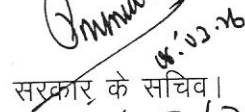 08.03.26
सरकार के सचिव।